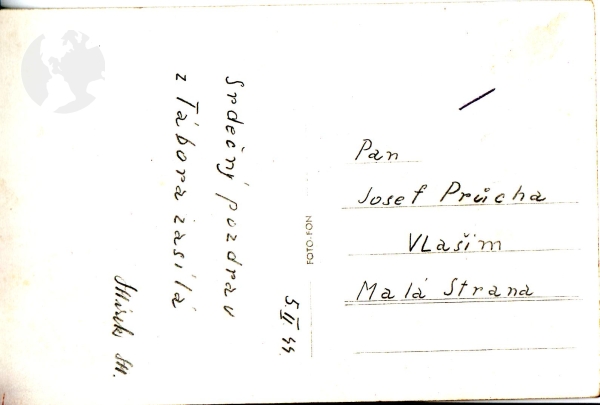 Srdečný pozdrav
z Tábora zasílá
5.II.44.
FOTO-FON
Pan
Josef Průcha
VLašim
Malá Strana